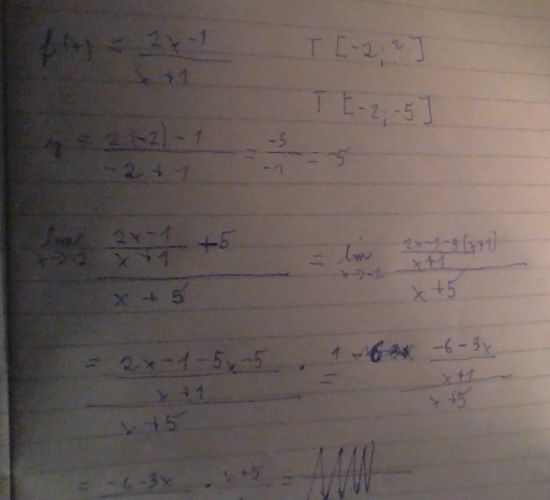 f(x) = (2x-1)/(x+1) T [-2; ?]
T [-2; -5]
y = (2(-2)-1)/(-2+1) = -5/-1 = -5
lim x→-2 ((2x-1)/(x+1) + 5)/(x+5) = lim x→-2 ((2x-1-5(x+1))/(x+1))/(x+5)
= ((2x-1-5x-5)/(x+1))/(x+5) · = ((-6-3x)/(x+1))/(x+5)
= -6-3x · x+5 =